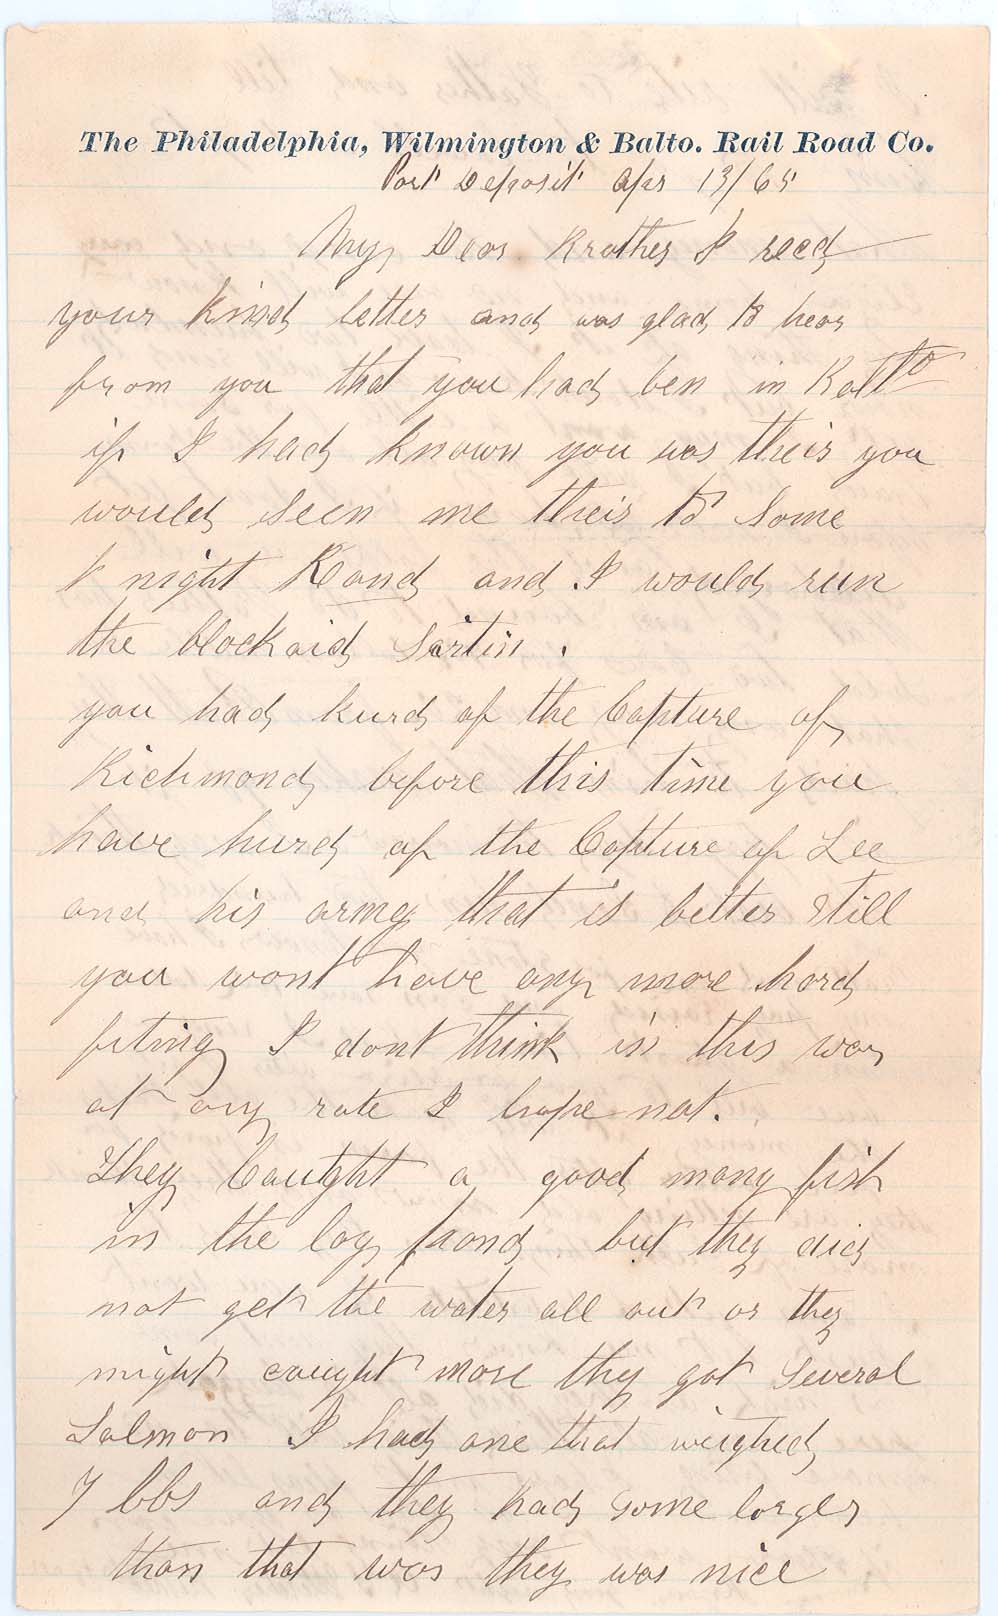 The Philadelphia, Wilmington & Balto. Rail Road Co.
Port Deposit Apr 13/65
My Dear Brother I recd
your kind letter and was glad to hear
from you that you had ben in Balto
if I had known you was their you
would seen me their to some
night and and I would run
the blockaid sartin.
you had hurd of the Capture of
Richmond before this time you
have hurd of the Capture of Lee
and his army that is better still
you wont have any more hard
fiting I dont think in this war
at any rate I hope not.
They Caught a good many fish
in the log pond but they did
not get the water all out or they
might caught more they got several
Salmon I had one that weighed
7 lbs and they had some larger
than that was they was nice